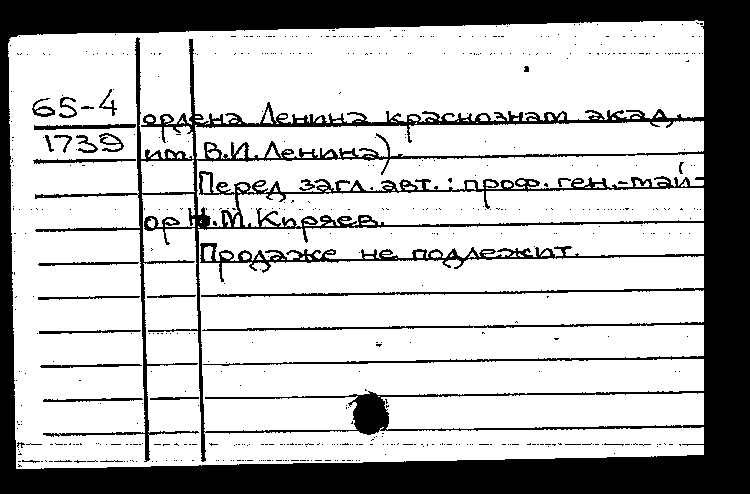 65-4
ордена Ленина краснознам акад.
1739
им. В.И.Ленина).
Перед загл. авт.: проф. ген.-май-
ор Н.М.Киряев.
Продаже не подлежит.